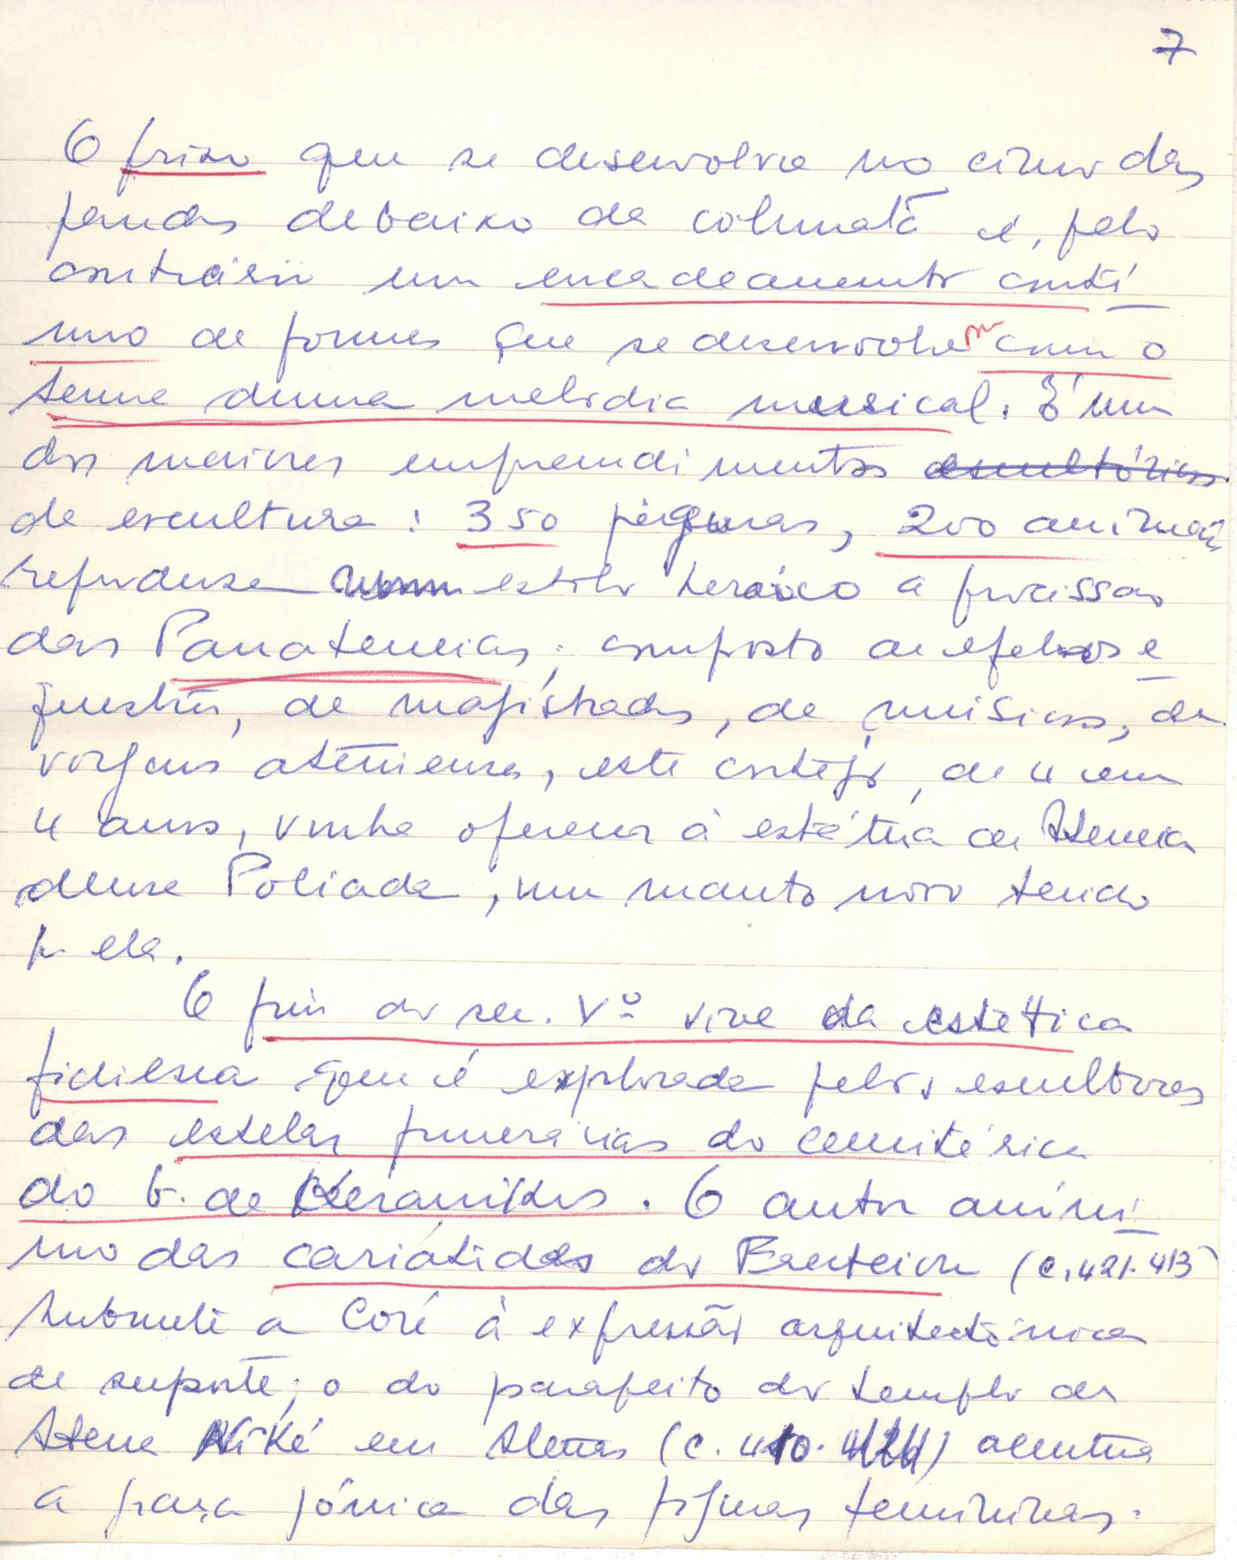 7
O friso que se desenvolve no cimo das
paredes debaixo da colunata é, pelo
contrário um encadeamento contí-
nuo de formas que se desenvolvem como o
tema duma melodia musical. É um
dos maiores empreendimentos escultóricos
de escultura: 350 figuras, 200 animais
reproduzem num estilo heroico a procissão
das Panateneias; composto de efebos e-
questres, de magistrados, de músicos, de
virgens atenienses, este cortejo, de 4 em
4 anos, vinha oferecer à estátua de Atena
deusa Poliada, um manto novo tecido
p. ela.
O fim do sec. Vº vive da estética
fidiesca que é explorada pelos escultores
das estelas funerárias do cemitério
do b. de Keramikos. O autor anóni-
mo das cariátides do Erecteion (c. 421-413)
submete a Coré à expressão arquitectónica
de suporte; o do parapeito do templo de
Atena Niké em Atenas (c. 410-) acentua
a graça jónica das figuras femininas.